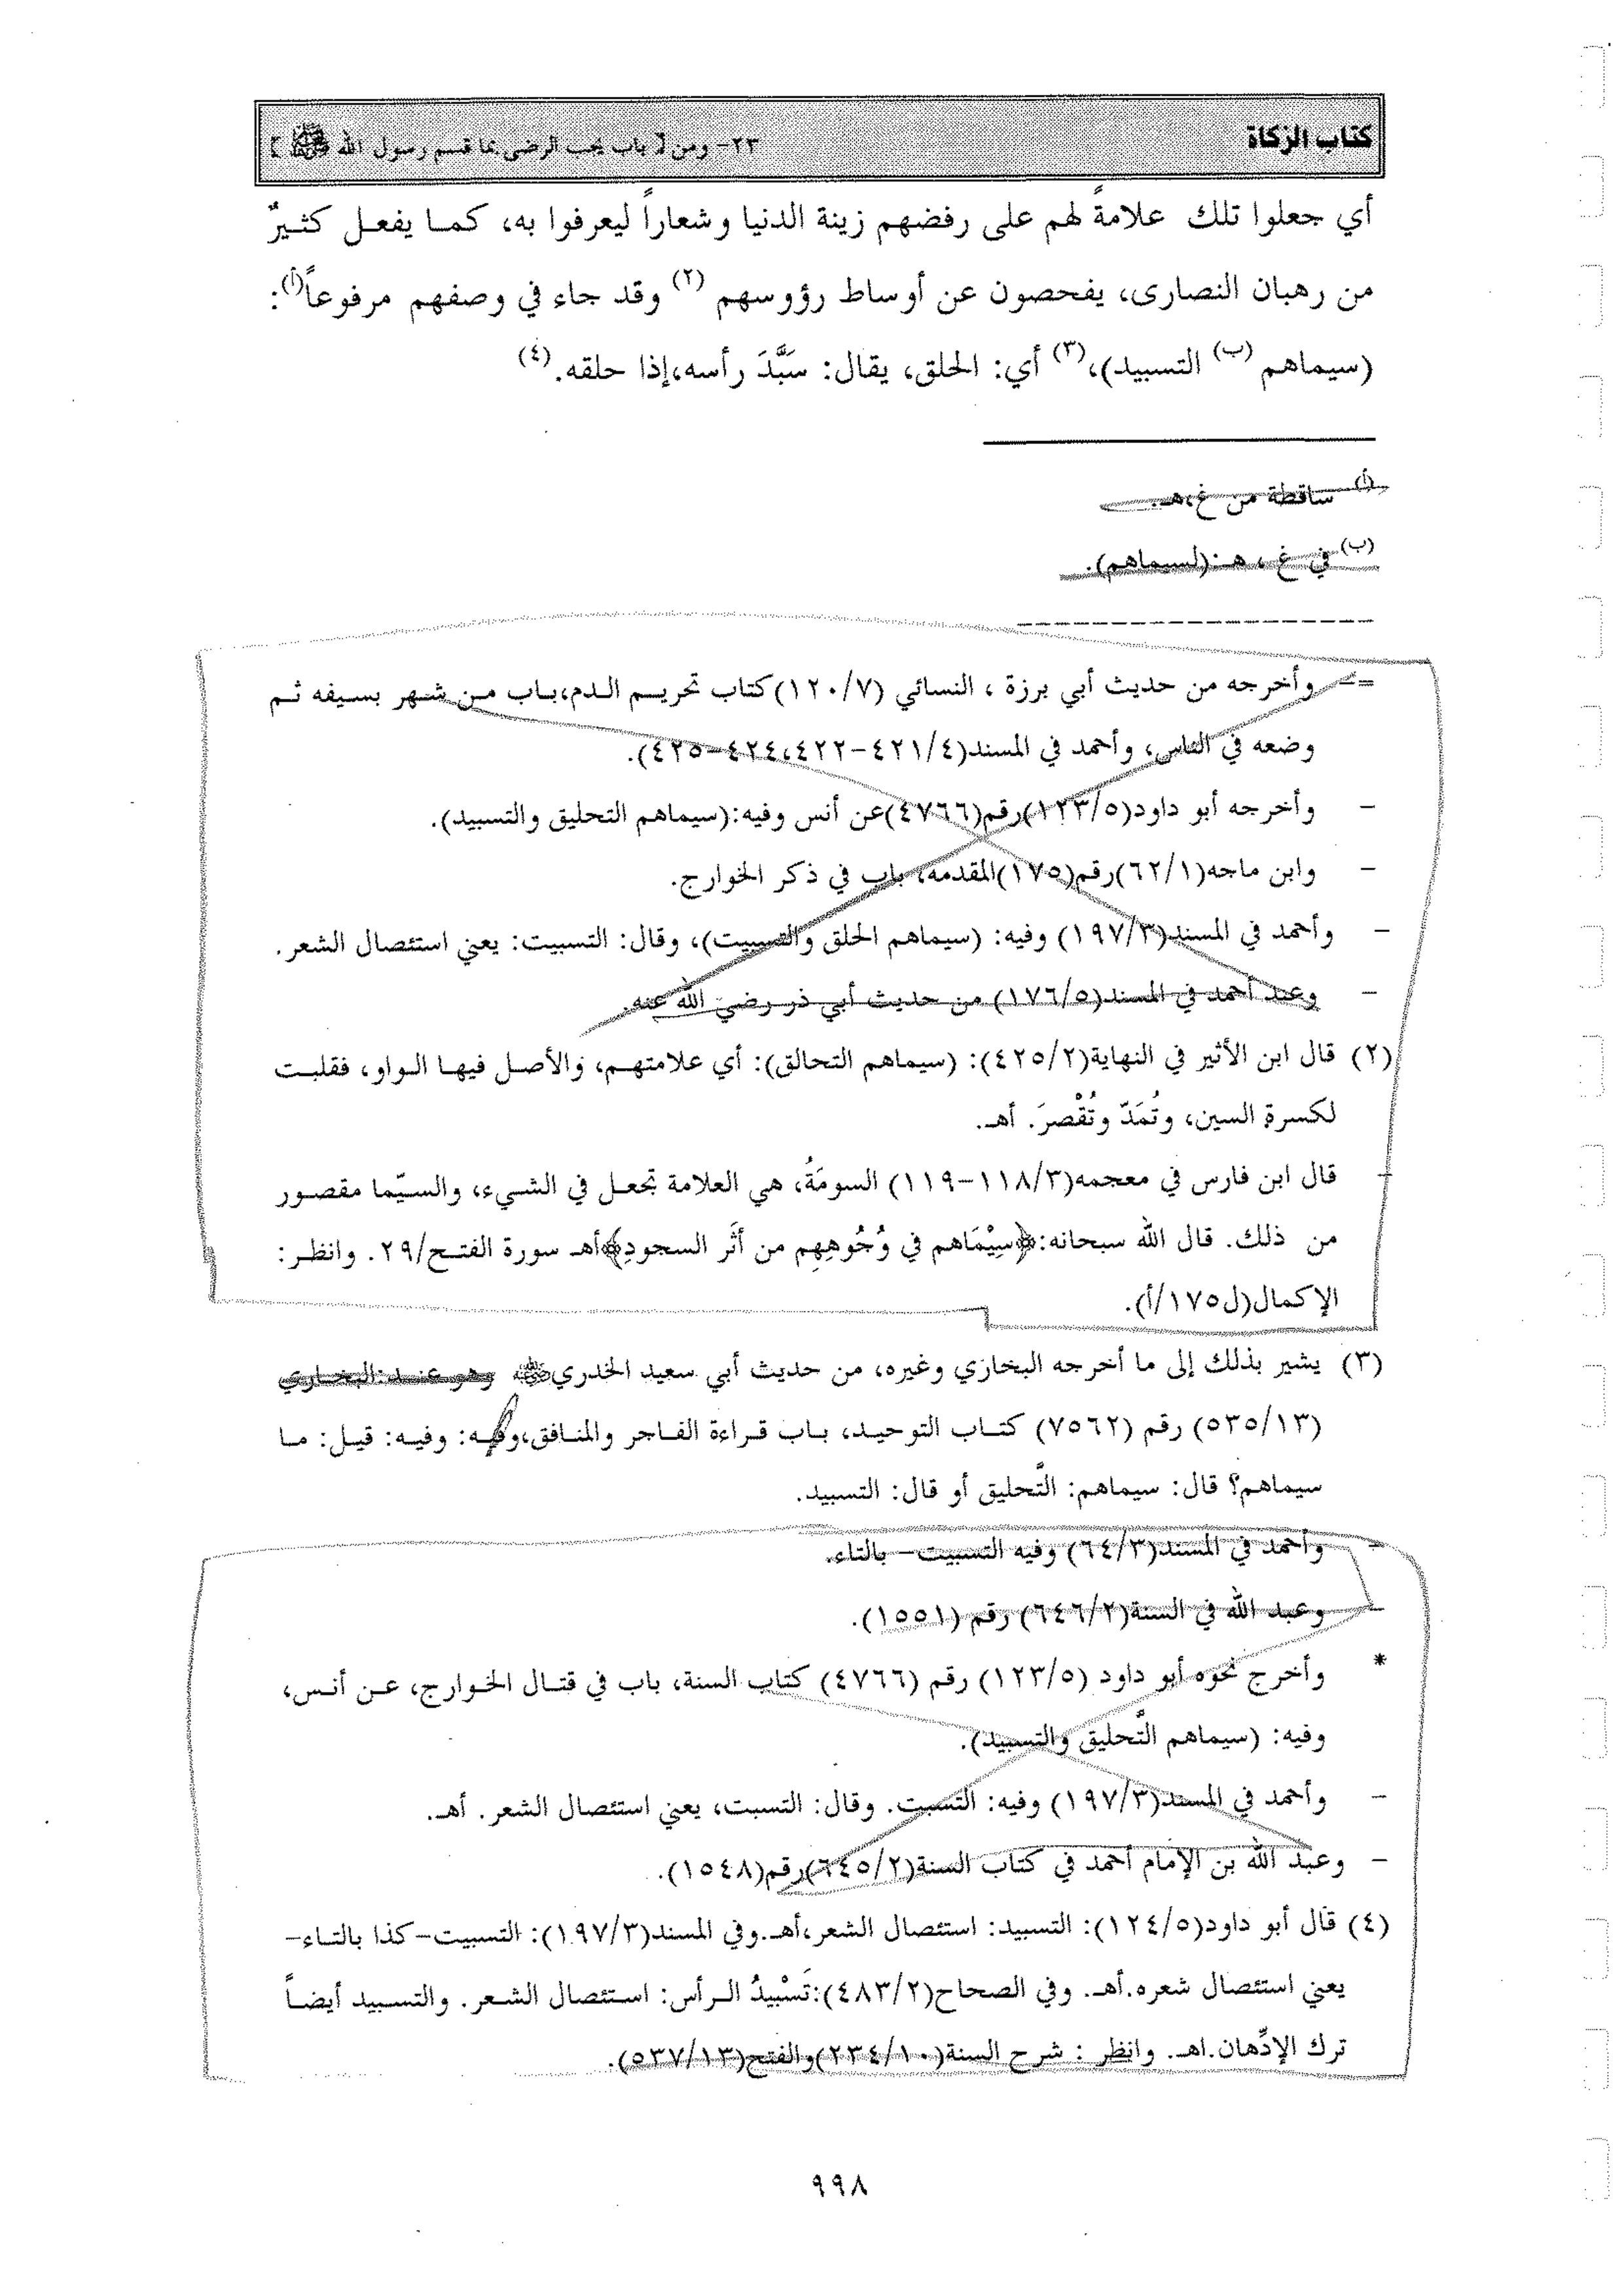 كتاب الزكاة
٢٣- ومن [ باب يجب الرضى بما قسم رسول الله ﷺ ]
أي جعلوا تلك علامةً لهم على رفضهم زينة الدنيا وشعاراً ليعرفوا به، كما يفعل كثيرٌ
من رهبان النصارى، يفحصون عن أوساط رؤوسهم (٢) وقد جاء في وصفهم مرفوعاً(أ):
(سيماهم (ب) التسبيد)،(٣) أي: الحلق، يقال: سَبَّدَ رأسه،إذا حلقه.(٤)
(أ) ساقطة من غ،هـ.
(ب) في غ ، هـ:(لسيماهم).
== وأخرجه من حديث أبي برزة ، النسائي (١٢٠/٧)كتاب تحريم الدم،باب من شهر بسيفه ثم
وضعه في الناس، وأحمد في المسند(٤٢١/٤-٤٢٢،٤٢٤-٤٢٥).
- وأخرجه أبو داود(١٢٣/٥)رقم(٤٧٦٦)عن أنس وفيه:(سيماهم التحليق والتسبيد).
- وابن ماجه(٦٢/١)رقم(١٧٥)المقدمه، باب في ذكر الخوارج.
- وأحمد في المسند(١٩٧/٣) وفيه: (سيماهم الحلق والتسبيت)، وقال: التسبيت: يعني استئصال الشعر.
- وعند أحمد في المسند(١٧٦/٥) من حديث أبي ذر رضي الله عنه.
(٢) قال ابن الأثير في النهاية(٤٢٥/٢): (سيماهم التحالق): أي علامتهم، والأصل فيها الواو، فقلبت
لكسرة السين، وتُمَدّ وتُقْصرَ. أهـ.
- قال ابن فارس في معجمه(١١٨/٣-١١٩) السومَةُ، هي العلامة تجعل في الشيء، والسيّما مقصور
من ذلك. قال الله سبحانه:﴿سِيْمَاهم في وُجُوهِهِم من أثَر السجودِ﴾أهـ سورة الفتح/٢٩. وانظر:
الإكمال(ل١٧٥/أ).
(٣) يشير بذلك إلى ما أخرجه البخاري وغيره، من حديث أبي سعيد الخدري وهو عند:البخاري
(٥٣٥/١٣) رقم (٧٥٦٢) كتاب التوحيد، باب قراءة الفاجر والمنافق،وفيه: وفيه: قيل: ما
سيماهم؟ قال: سيماهم: التَّحليق أو قال: التسبيد.
- وأحمد في المسند(٦٤/٣) وفيه التسبيت- بالتاء.
- وعبد الله في السنة(٦٤٦/٢) رقم (١٥٥١).
* وأخرج نحوه أبو داود (١٢٣/٥) رقم (٤٧٦٦) كتاب السنة، باب في قتال الخوارج، عن أنس،
وفيه: (سيماهم التَّحليق والتسبيد).
- وأحمد في المسند(١٩٧/٣) وفيه: التسبت. وقال: التسبت، يعني استئصال الشعر. أهـ.
- وعبد الله بن الإمام أحمد في كتاب السنة(٦٤٥/٢)رقم(١٥٤٨).
(٤) قال أبو داود(١٢٤/٥): التسبيد: استئصال الشعر،أهـ.وفي المسند(١٩٧/٣): التسبيت-كذا بالتاء-
يعني استئصال شعره.أهـ. وفي الصحاح(٤٨٣/٢):تَسْبيدُ الرأس: استئصال الشعر. والتسبيد أيضاً
ترك الإدِّهان.اهـ. وانظر : شرح السنة(٢٣٤/١٠)والفتح(٥٣٧/١٣).
٩٩٨